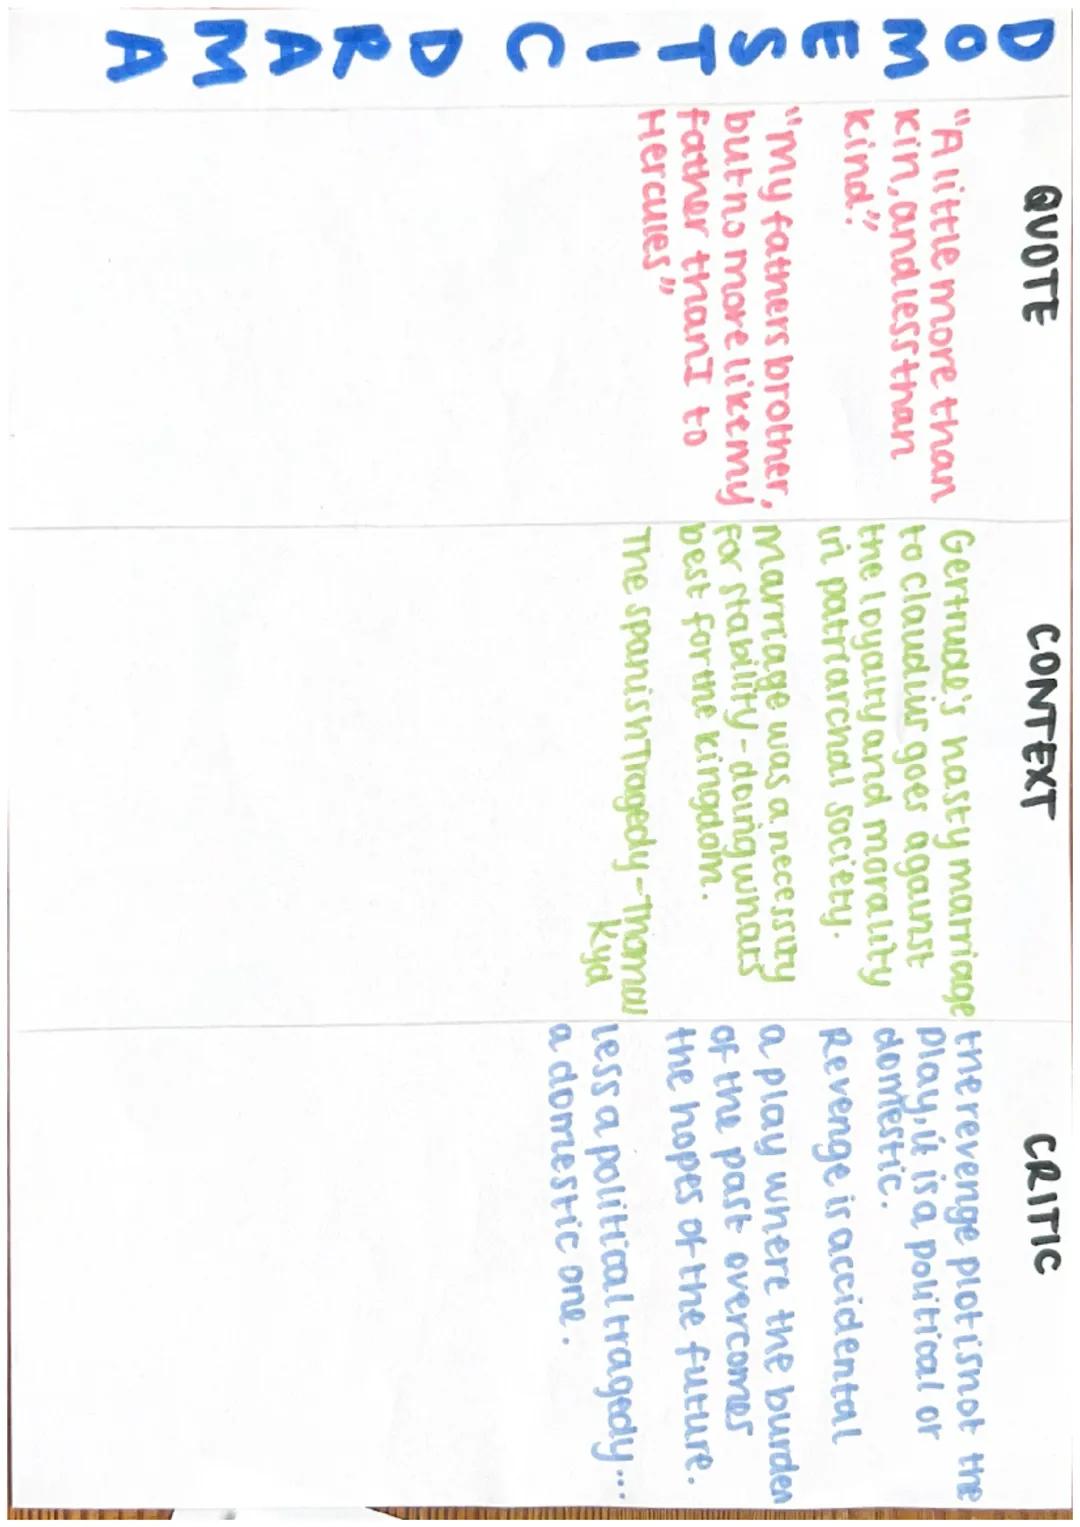 DOMESTIC DRAMA
QUOTE
"A little more than
kin, and less than
kind."
"My fathers brother,
but no more like my
father than I to
Hercules"
CONTEXT
Gertrude's hasty marriage
to claudius goes against
the loyalty and morality
in patriarchal society.
Marriage was a necessity
for stability - doing whats
best for the kingdom.
The spanish Tragedy - Thomas
Kyd
CRITIC
the revenge plot is not the
play, it is a political or
domestic.
Revenge is accidental
a play where the burden
of the past overcomes
the hopes of the future.
less a political tragedy...
a domestic one.